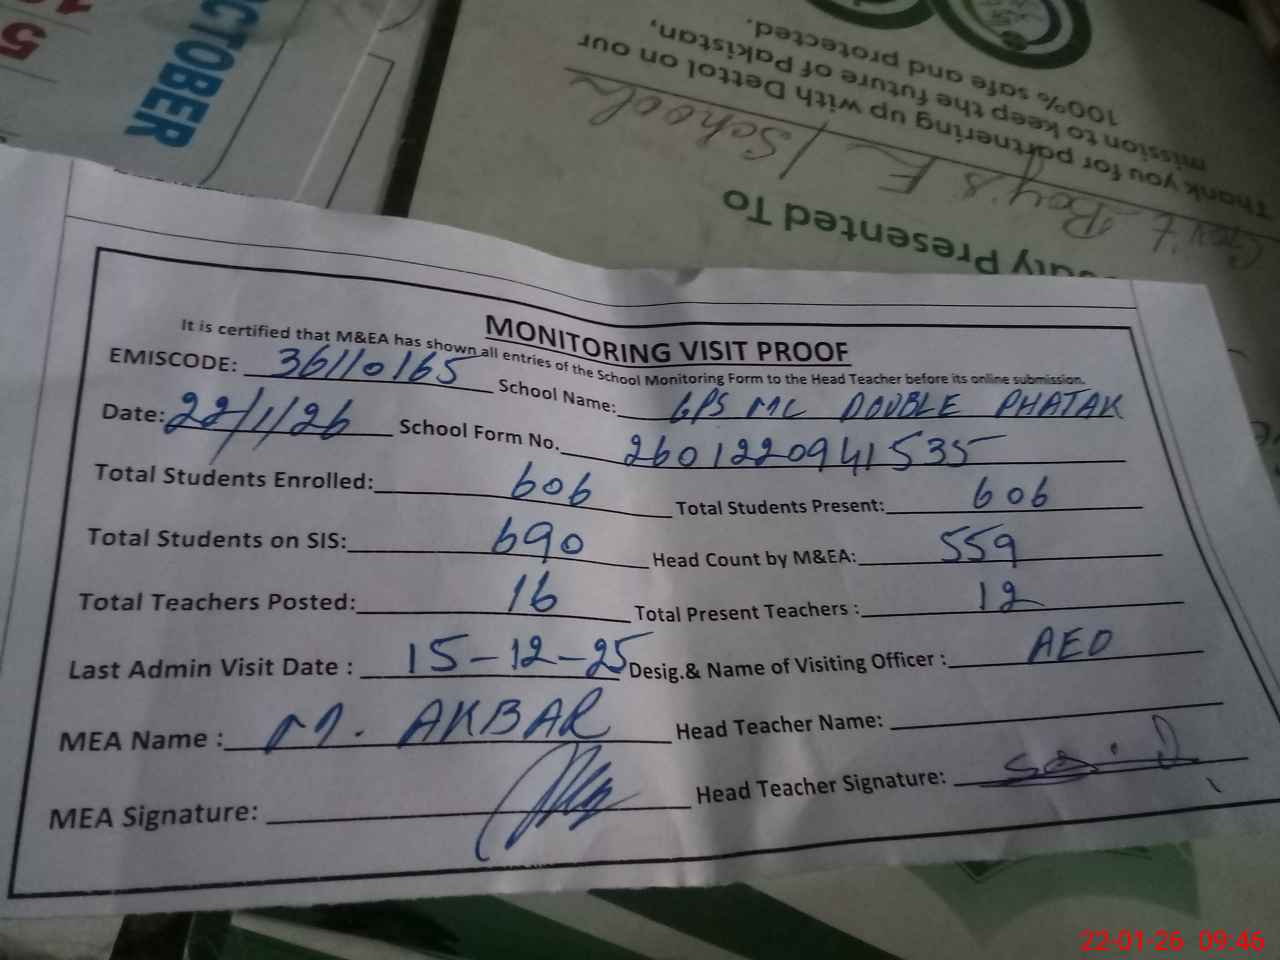 OCTOBER
5
100% safe and protected.
mission to keep the future of Pakistan,
Thank you for partnering up with Dettol on our
Gov't Boy's E/School
Presented To
MONITORING VISIT PROOF
It is certified that M&EA has shown all entries of the School Monitoring Form to the Head Teacher before its online submission.
EMISCODE: 36110165 School Name: GPS MC DOUBLE PHATAK
Date: 22/1/26 School Form No. 2601220941535
Total Students Enrolled: 606 Total Students Present: 606
Total Students on SIS: 690 Head Count by M&EA: 559
Total Teachers Posted: 16 Total Present Teachers : 12
Last Admin Visit Date : 15-12-25 Desig.& Name of Visiting Officer : AEO
MEA Name : M. AKBAR Head Teacher Name:
MEA Signature: Head Teacher Signature:
22-01-26 09:46